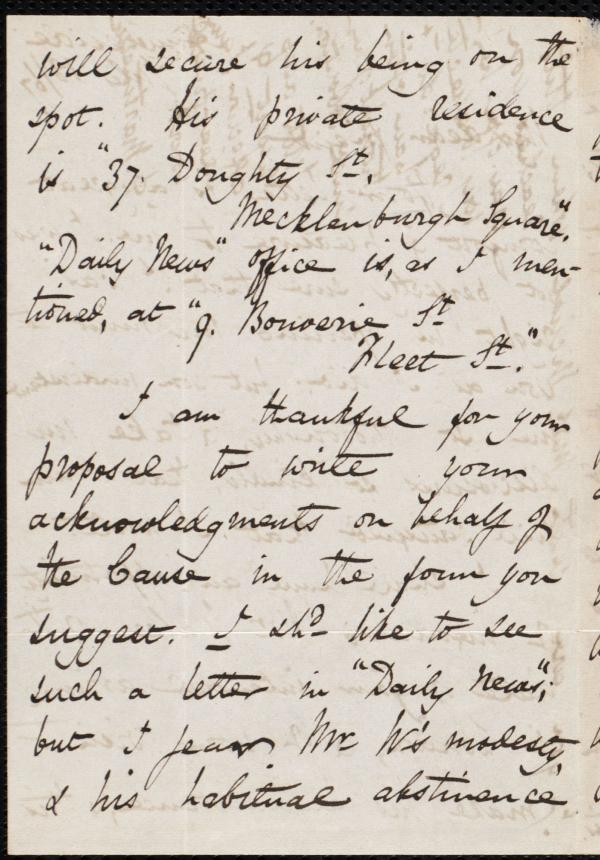 will secure his being on the
spot. His private residence
is "37. Doughty St.,
Mecklenburgh Square".
"Daily News" office is, as I men-
tioned, at "9. Bouverie St
Fleet St."
I am thankful for your
proposal to write your
acknowledgments on behalf of
the Cause in the form you
suggest. I shd like to see
such a letter in "Daily News";
but I fear Mr W's modesty,
& his habitual abstinence